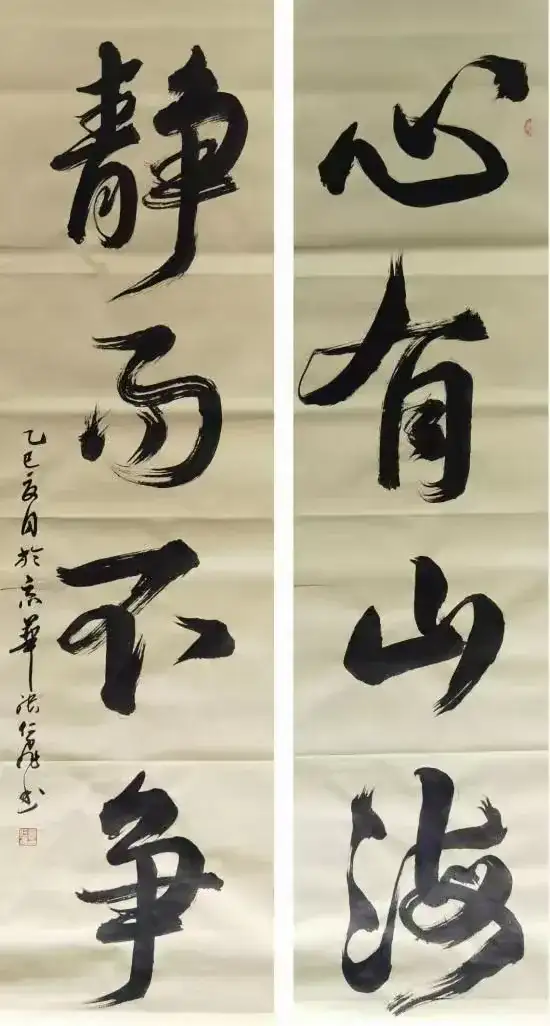 心有山海
静而不争
乙巳夏月於京華張仁龍书